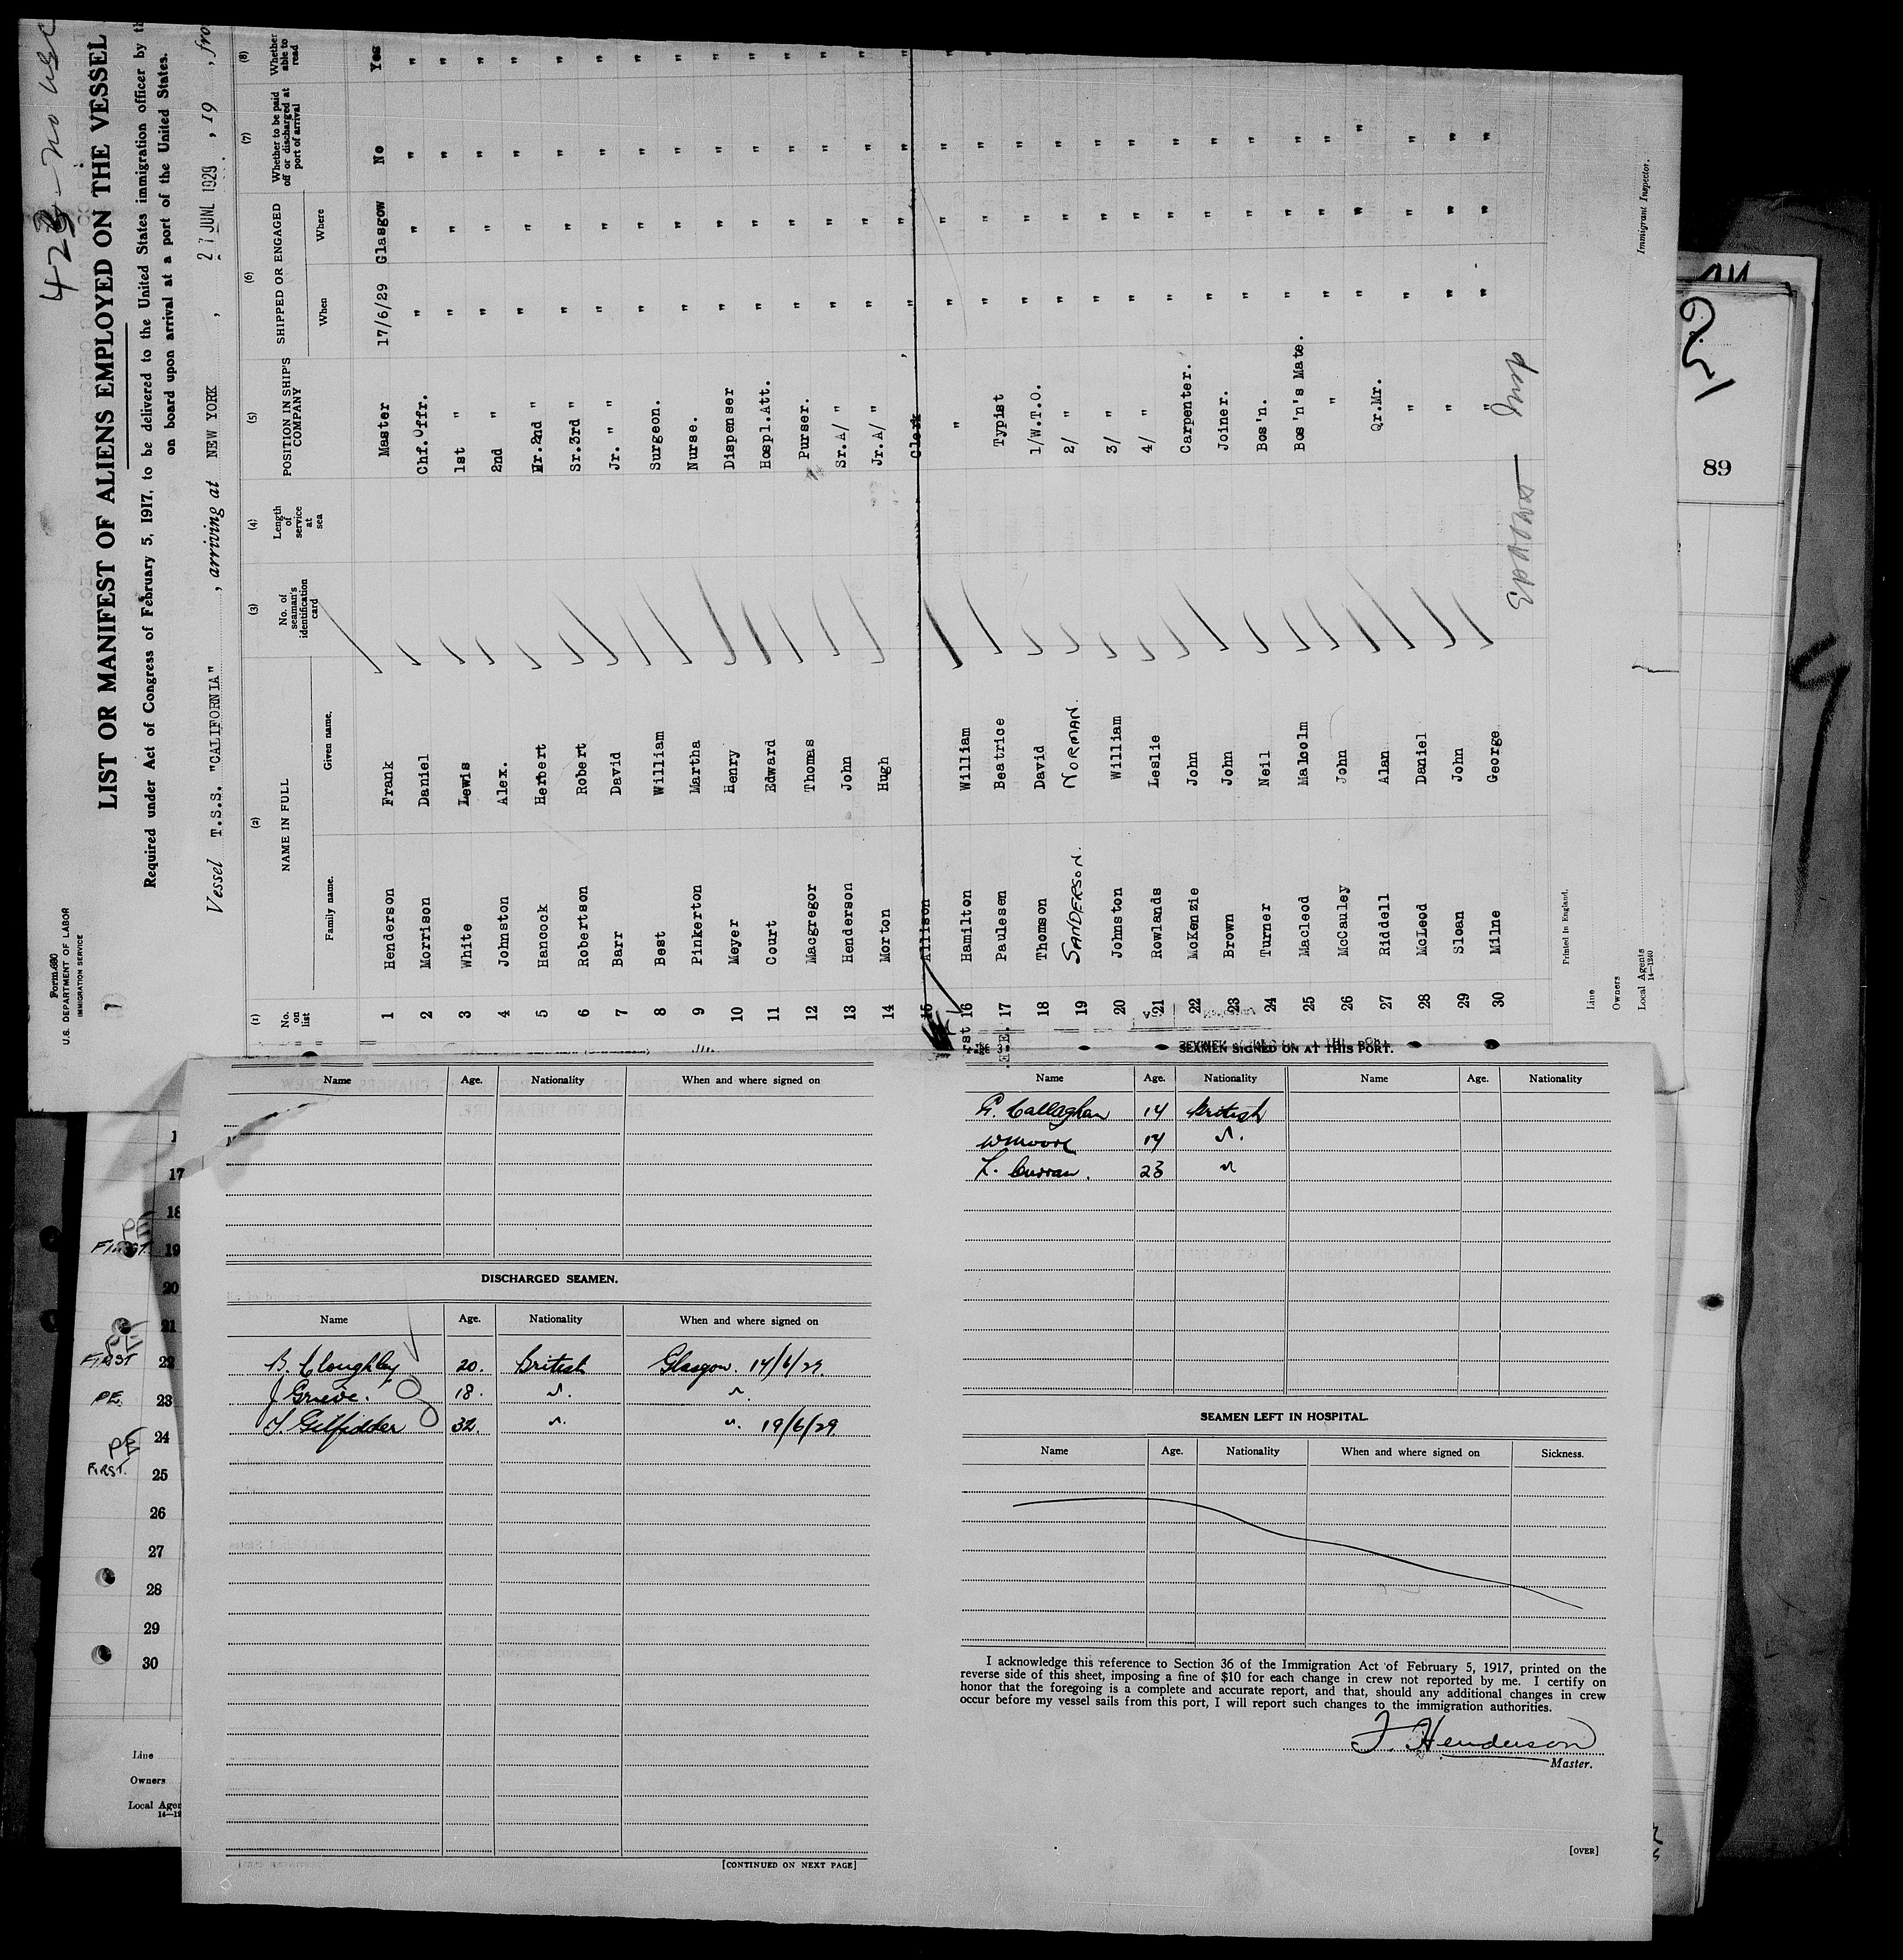 Form 680
U.S. DEPARTMENT OF LABOR
IMMIGRATION SERVICE
1
423 - no usc
LIST OR MANIFEST OF ALIENS EMPLOYED ON THE VESSEL
Required under Act of Congress of February 5, 1917, to be delivered to the United States immigration officer by th
on board upon arrival at a port of the United States.
Vessel T.S.S. "CALIFORNIA", arriving at NEW YORK, 27 JUNE 1929, 19 , fro
(1) (2) (3) (4) (5) (6) (7) (8)
No. on list NAME IN FULL No. of seaman's identification card Length of service at sea POSITION IN SHIP'S COMPANY SHIPPED OR ENGAGED Whether to be paid off or discharged at port of arrival Whether able to read
Family name. Given name. When Where
1 Henderson Frank Master 17/6/29 Glasgow No Yes
2 Morrison Daniel Chf.Offr. " " " "
3 White Lewis 1st " " " " "
4 Johnston Alex. 2nd " " " " "
5 Hancock Herbert Nr.2nd " " " " "
6 Robertson Robert Sr.3rd " " " " "
7 Barr David Jr. " " " " " "
8 Best William Surgeon. " " " "
9 Pinkerton Martha Nurse. " " " "
10 Meyer Henry Dispenser " " " "
11 Court Edward Hospl.Att. " " " "
12 Macgregor Thomas Purser. " " " "
13 Henderson John Sr.A/ " " " " "
14 Morton Hugh Jr.A/ " " " " "
15 Allison Clerk " " " "
16 Hamilton William " " " " "
17 Paulesen Beatrice Typist " " "
18 Thomson David 1/W.T.O. " " "
19 SANDERSON. NORMAN. 2/ " " " "
20 Johnston William 3/ " " " "
21 Rowlands Leslie 4/ " " " "
22 McKenzie John Carpenter. " " "
23 Brown John Joiner. " " "
24 Turner Neil Bos'n. " " "
25 Macleod Malcolm Bos'n's Mate. " " "
26 McCauley John " " " "
27 Riddell Alan Qr.Mr. " " "
28 McLeod Daniel " " " "
29 Sloan John " " " "
30 Milne George " " " "
Insp
Printed in England.
Line
Owners
Local Agents
14—1240
Immigrant Inspector.
89
17
18
FIRST. 19
20
21
FIRST 22
PE. 23
PE 24
FIRST. 25
26
27
28
29
30
Line
Owners
Local Agen
Name Age. Nationality When and where signed on
DISCHARGED SEAMEN.
Name Age. Nationality When and where signed on
B. Cloughley 20. British Glasgow. 17/6/29.
J Grieve. 18. ". ".
T. Gilfedder 32. ". ". 19/6/29
[CONTINUED ON NEXT PAGE]
SEAMEN SIGNED ON AT THIS PORT.
Name Age. Nationality Name Age. Nationality
G. Callaghan 14 British
W Moore 14 ".
L. Curran. 23 "
SEAMEN LEFT IN HOSPITAL.
Name Age. Nationality When and where signed on Sickness.
I acknowledge this reference to Section 36 of the Immigration Act of February 5, 1917, printed on the
reverse side of this sheet, imposing a fine of $10 for each change in crew not reported by me. I certify on
honor that the foregoing is a complete and accurate report, and that, should any additional changes in crew
occur before my vessel sails from this port, I will report such changes to the immigration authorities.
F. Henderson
Master.
[OVER]